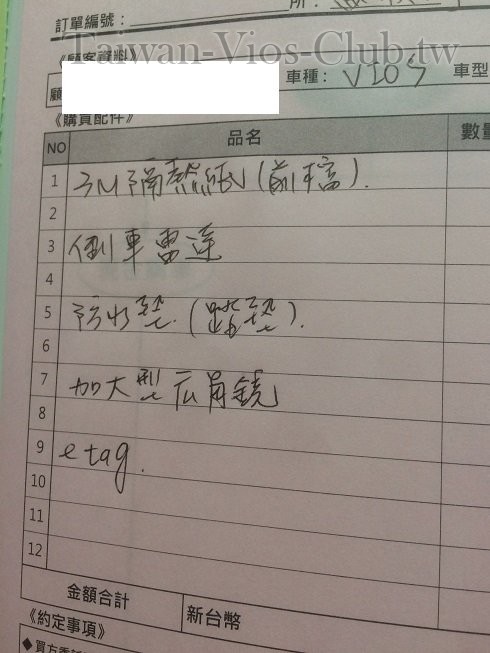 訂單編號：
Taiwan-Vios-Club.tw
《顧客資料》
顧
車種： VIOS 車型
《購買配件》
NO 品名 數量
1 3M隔熱紙(前檔).
2
3 倒車雷達
4
5 防水墊.(踏墊).
6
7 加大型広角鏡
8
9 etag.
10
11
12
金額合計 新台幣
《約定事項》
◆買方委託